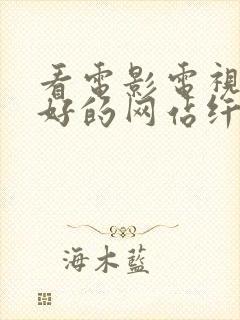 看電影電視
好的网估纤
海木藍